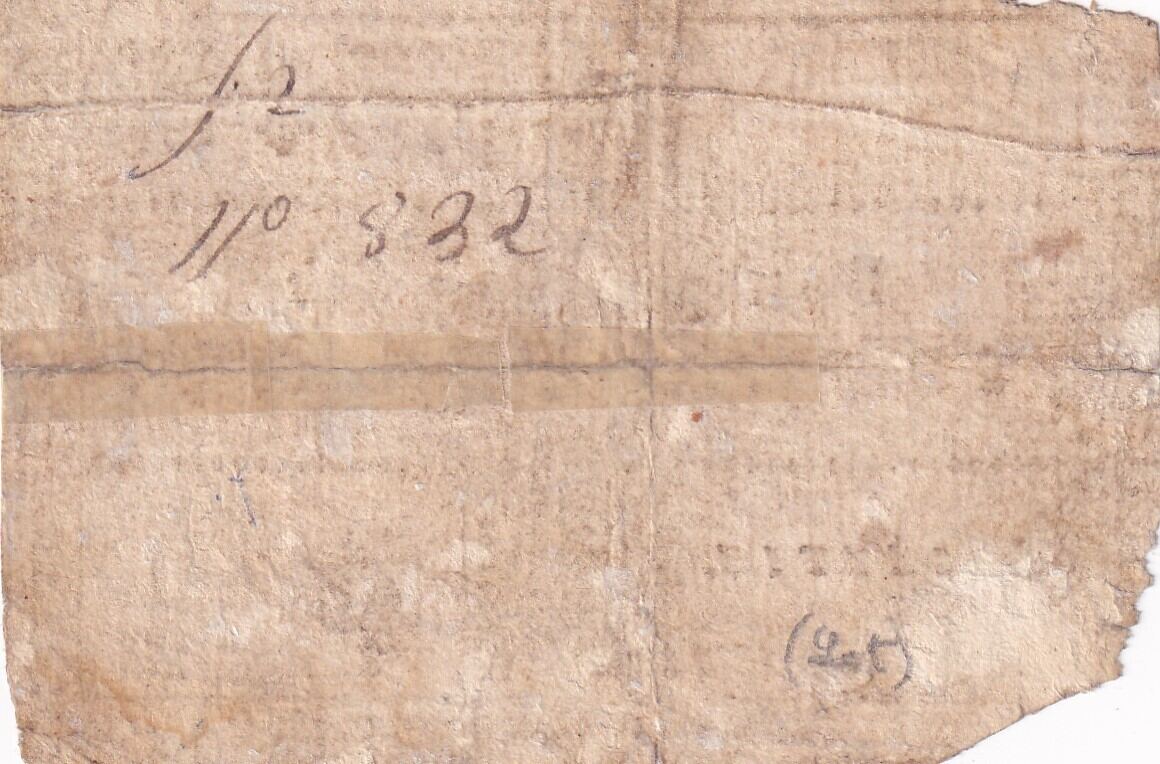 f. 2
No 832
(Lot)